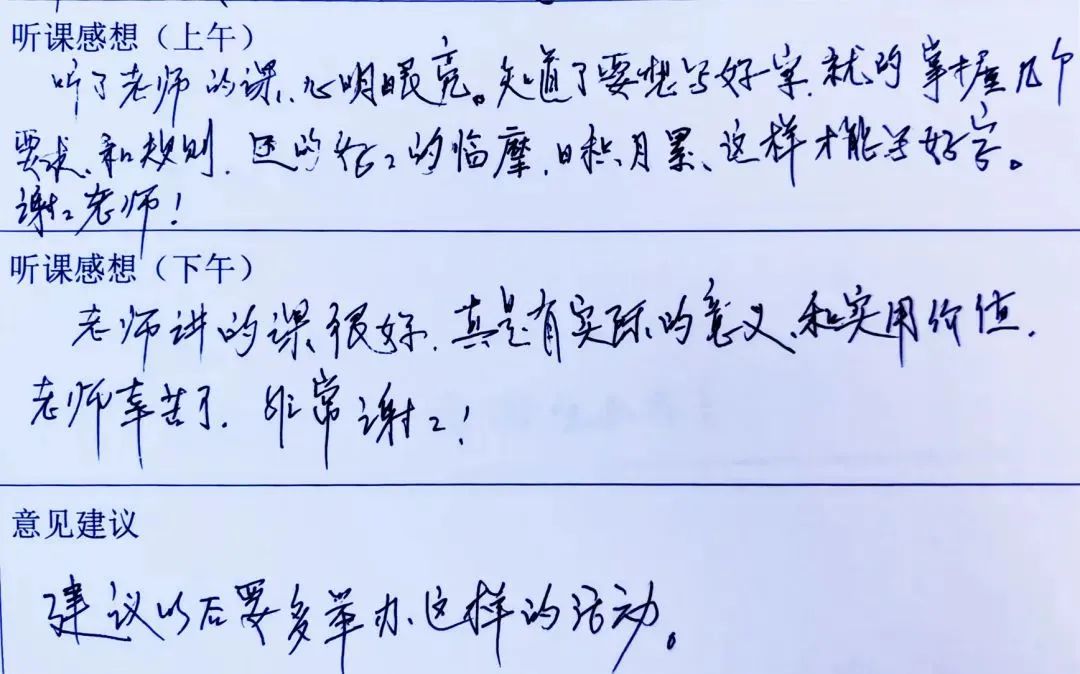 听课感想（上午）
听了老师的课、心明眼亮。知道了要想写好字，就的掌握几个
要求、和规则，还的经〻的临摩，日积月累、这样才能写好字。
谢〻老师！
听课感想（下午）
老师讲的课很好，真是有实际的意义、和实用价值，
老师辛苦了，非常谢〻！
意见建议
建议以后要多举办、这样的活动。